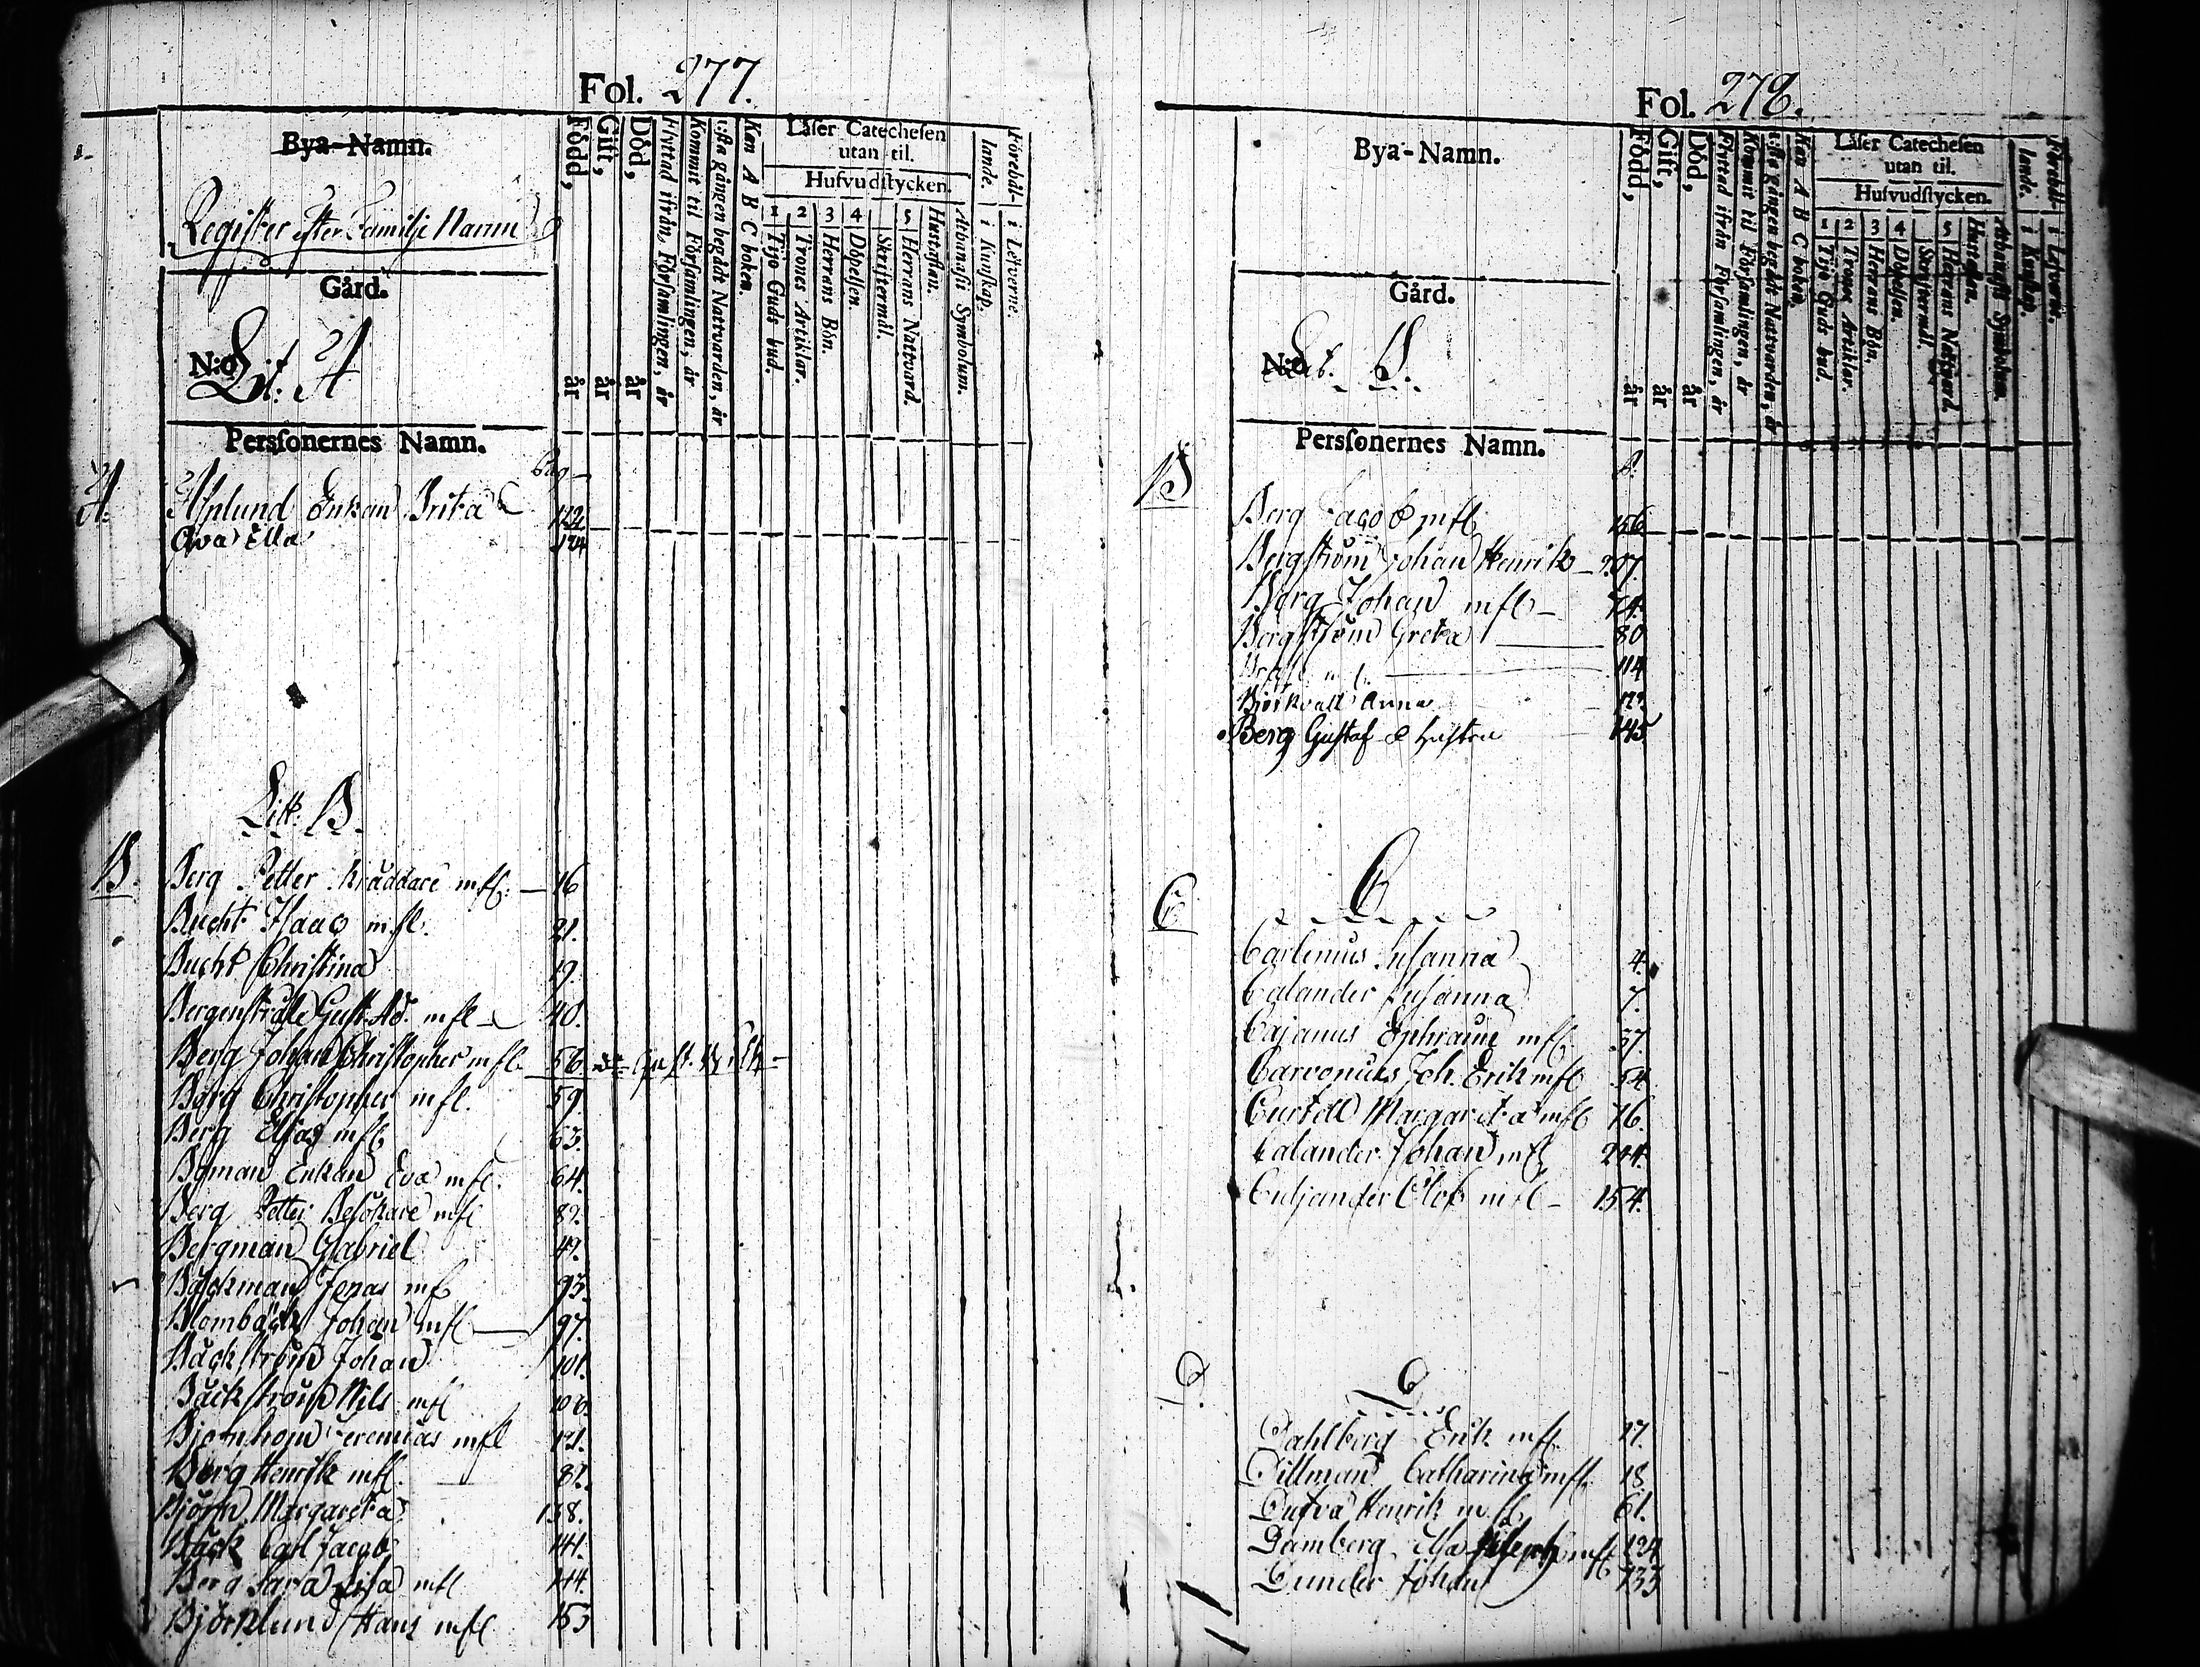 Fol. 277.
Bya-Namn.
Register efter Familje Namn
Gård.
N:o Lit: A
Personernes Namn.
Född, år
Gift, år
Död, år
Flyttad ifrån, Församlingen, år
Kommit til Församlingen, år
gången begådt Nattvarden, år
Kan A B C boken.
Läser Catechesen
utan til.
Hufvudstycken.
1 Tijo Guds bud.
2 Trones Artiklar.
3 Herrans Bön.
4 Döpelsen.
Skriftermål.
5 Herrans Nattvard.
Hustaflan.
Athanasii Symbolum.
i Kunskap.
i Lefverne.
Pag
A. Asplund Enkan Brita 112
Ava Ella 124
Litt: B.
B. Berg Petter Skräddare mfl: — 16
Bucht Isaac mfl. 21.
Bucht Christina 19.
Bergenstråle Gust. Ad. mfl 40.
Berg Johan Christopher mfl 56
Berg Christopher mfl. 59.
Berg Elias mfl 63.
Byman Enkan Eva mfl. 64.
Berg Petter Besökare mfl 82.
Bergman Gabriel 49.
Bäckman Jonas mfl 93.
Blombäck Johan mfl — 97.
Bäckström Johan 101.
Bäckström Nils mfl 106.
Björnhom Jeremias mfl 121.
Berg Henrik mfl. 82.
Björn Margareta 138.
Bäck Carl Jacob 141.
Berg Sara Lisa mfl 144.
Björklund Hans mfl 153
Fol. 278.
Bya-Namn.
Gård.
N:o B.
Personernes Namn.
Född, år
Gift, år
Död, år
Flyttad ifrån Församlingen, år
Kommit til Församlingen, år
gången begådt Nattvarden, år
Kan A B C boken.
Läser Catechesen
utan til.
Hufvudstycken.
1 Tijo Guds bud.
2 Trones Artiklar.
3 Herrans Bön.
4 Döpelsen.
Skriftermål.
5 Herrans Nattvard.
Hustaflan.
Athanasii Symbolum.
i Kunskap.
i Lefverne.
B
Berg Jacob mfl 156
Bergström Johan Henrik — 207.
Berg Johan mfl — 74.
Bergström Greta — 80
114
Björkvall Anna 122.
Berg Gustaf & hustru 145
C
C Carlenius Susanna 4.
Calander Susanna 7.
Cajanus Ephraim mfl 37.
Carvonius Joh. Erik mfl 54
Curtell Margareta mfl 76.
Calander Johan mfl 244.
Culjander Olof mfl — 154.
D
D
Dahlberg Erik mfl. 17.
Dillman Catharina mfl. 18
Dufva Henrik mfl 61.
Damberg mfl 124
Dunder Johan 133